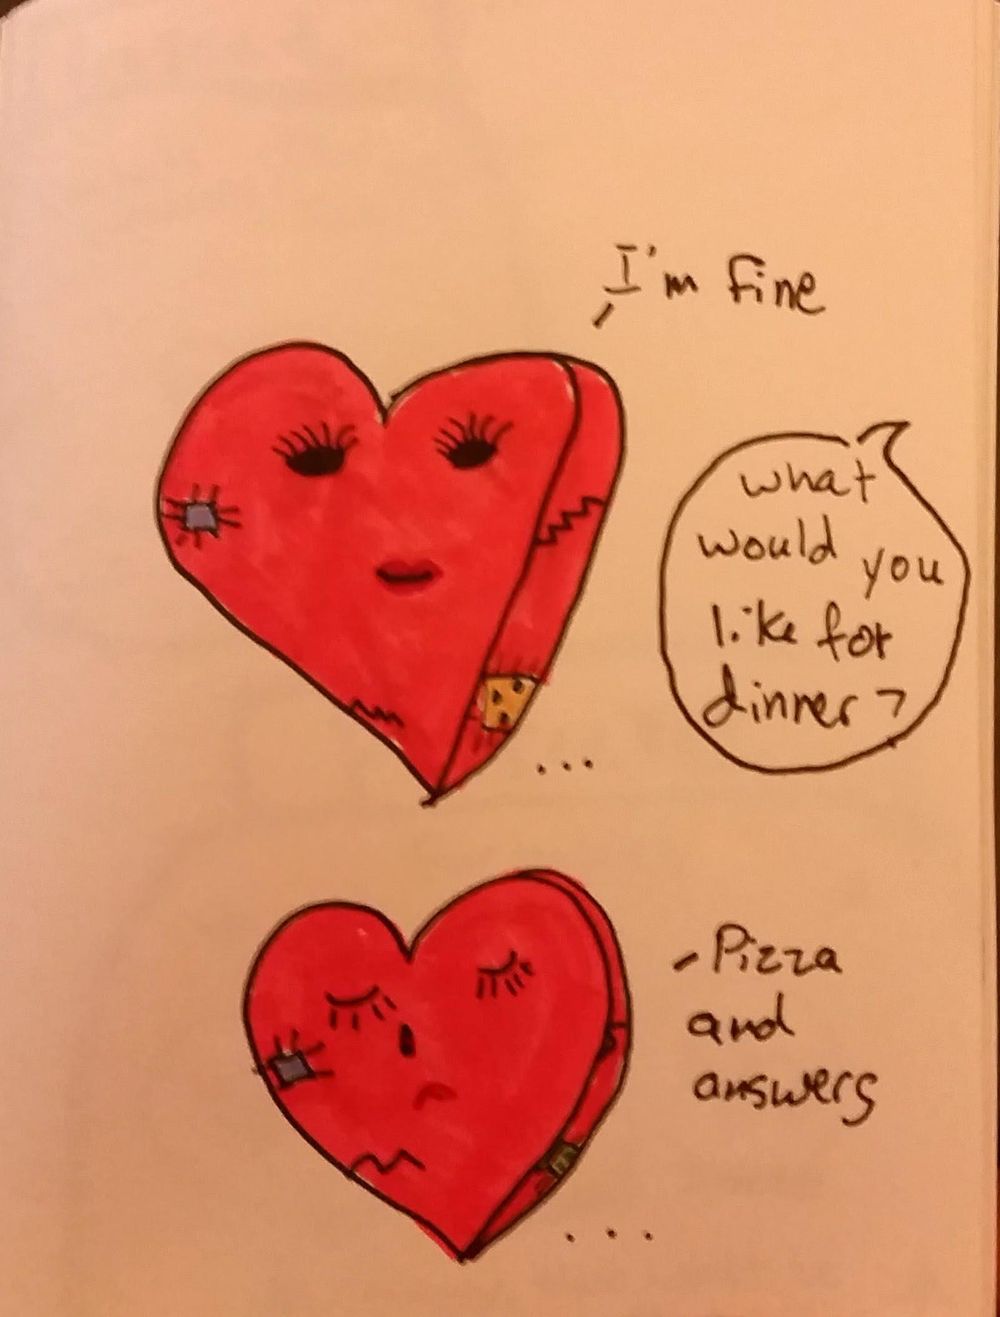 I'm fine
what
would you
like for
dinner?
...
- Pizza
and
answers
...